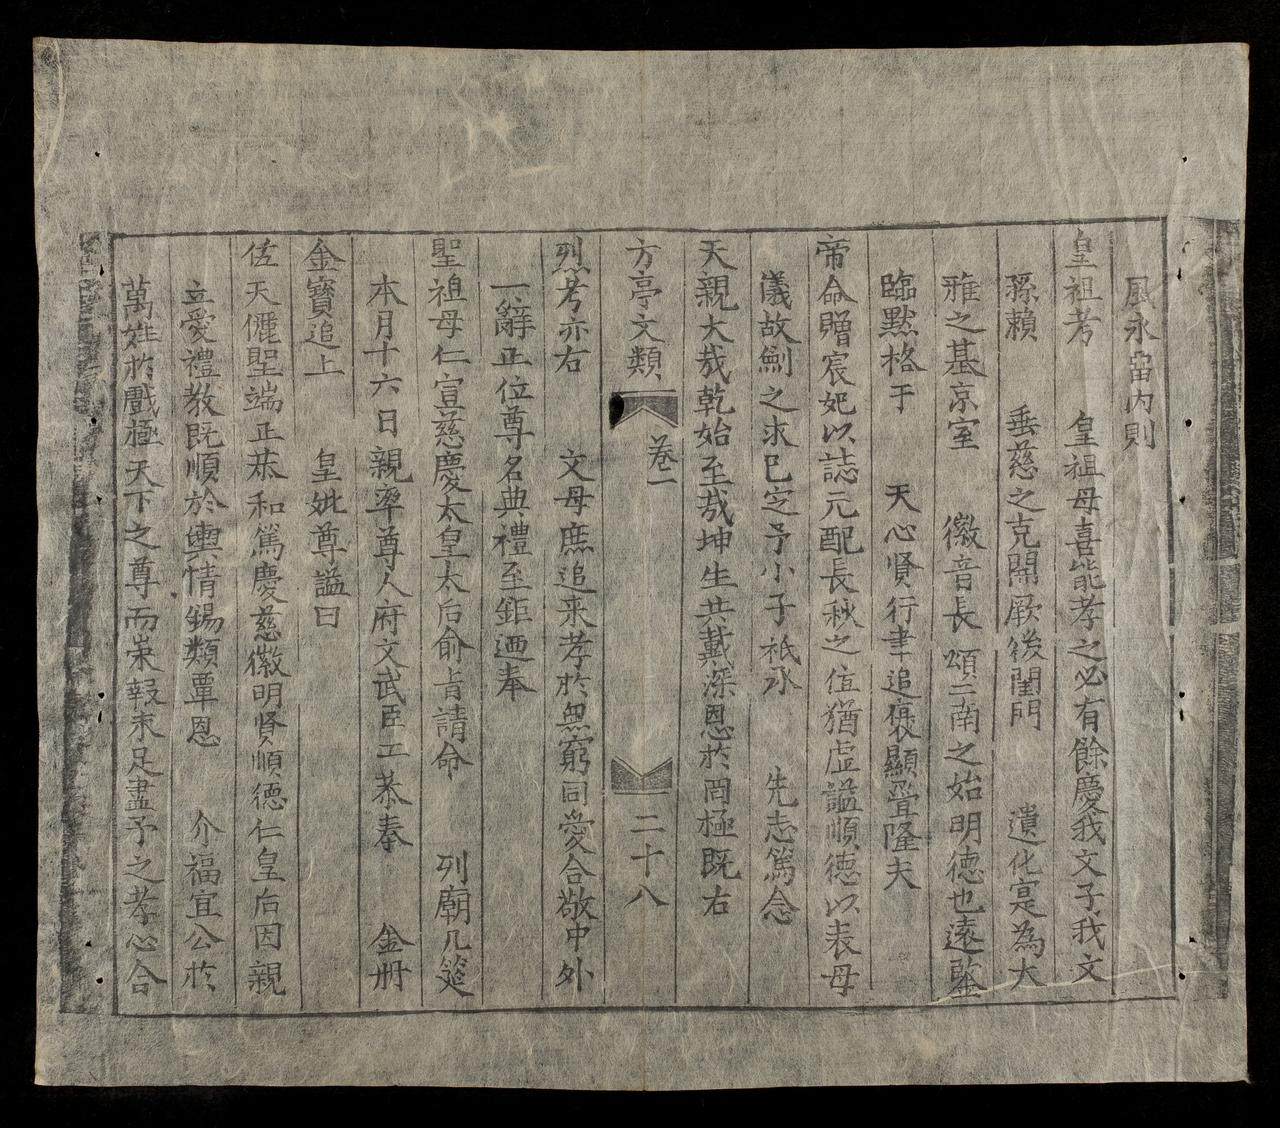 風永畨內則
皇祖考 皇祖母喜能孝之必有餘慶我文子我文
孫賴 垂慈之克開厥後閨門 遺化寔為大
雅之基京室 徽音長頌二南之始明德也遠監
臨黙格于 天心賢行聿追褒顯疊隆夫
帝命贈宸妃以誌元配長秋之位猶虛謚順德以表母
儀故劍之求已定予小子祇承 先志篤念
天親大哉乾始至哉坤生共戴深恩於罔極既右
方亭文類 卷一 二十八
烈考亦右 文母庶追來孝於無窮同愛合敬中外
一辭正位尊名典禮至鉅迺奉
聖祖母仁宣慈慶太皇太后俞旨請命 列廟几筵
本月十六日親率尊人府文武臣工恭奉 金冊
金寶追上 皇妣尊謚曰
佐天儷聖端正恭和篤慶慈徽明賢順德仁皇后因親
立愛禮教既順於輿情錫類覃恩 介福宜公於
萬姓於戲極天下之尊而崇報未足盡予之孝心合